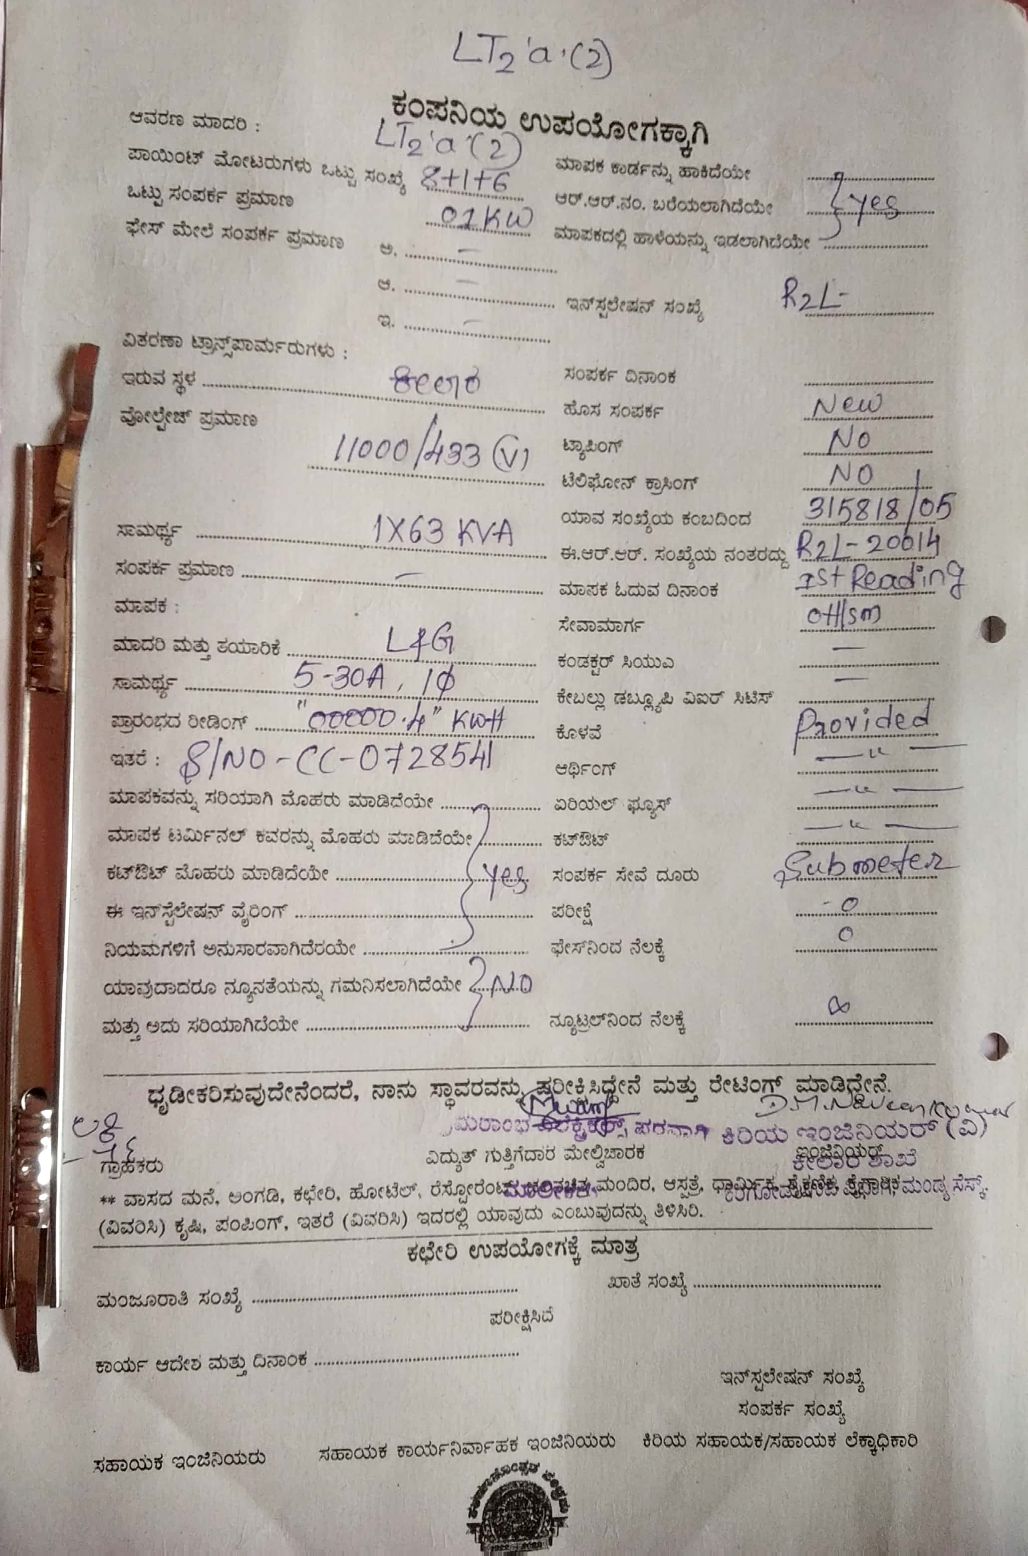 LT2 'a'(2)
ಕಂಪನಿಯ ಉಪಯೋಗಕ್ಕಾಗಿ
ಆವರಣ ಮಾದರಿ : LT2 'a'(2)
ಪಾಯಿಂಟ್ ಮೋಟರುಗಳು ಒಟ್ಟು ಸಂಖ್ಯೆ 8+1+6 ಮಾಪಕ ಕಾರ್ಡನ್ನು ಹಾಕಿದೆಯೇ
ಒಟ್ಟು ಸಂಪರ್ಕ ಪ್ರಮಾಣ 01KW ಆರ್.ಆರ್.ನಂ. ಬರೆಯಲಾಗಿದೆಯೇ yes
ಫೇಸ್ ಮೇಲೆ ಸಂಪರ್ಕ ಪ್ರಮಾಣ ಅ. – ಮಾಪಕದಲ್ಲಿ ಹಾಳೆಯನ್ನು ಇಡಲಾಗಿದೆಯೇ
ಆ. – ಇನ್‌ಸ್ಟಲೇಷನ್ ಸಂಖ್ಯೆ R2L-
ಇ. –
ವಿತರಣಾ ಟ್ರಾನ್ಸ್‌ಪಾರ್ಮರುಗಳು :
ಇರುವ ಸ್ಥಳ ಕೀಲಾರ ಸಂಪರ್ಕ ದಿನಾಂಕ
ವೋಲ್ಟೇಜ್ ಪ್ರಮಾಣ 11000/433 (V) ಹೊಸ ಸಂಪರ್ಕ New
ಟ್ಯಾಪಿಂಗ್ NO
ಟೆಲಿಫೋನ್ ಕ್ರಾಸಿಂಗ್ NO
ಯಾವ ಸಂಖ್ಯೆಯ ಕಂಬದಿಂದ 315818/05
ಸಾಮರ್ಥ್ಯ 1X63 KVA ಈ.ಆರ್.ಆರ್. ಸಂಖ್ಯೆಯ ನಂತರದ್ದು R2L-20014
ಸಂಪರ್ಕ ಪ್ರಮಾಣ – ಮಾಪಕ ಓದುವ ದಿನಾಂಕ Ist Reading
ಮಾಪಕ : ಸೇವಾಮಾರ್ಗ OH/SM
ಮಾದರಿ ಮತ್ತು ತಯಾರಿಕೆ L&G ಕಂಡಕ್ಟರ್ ಸಿಯುಎ –
ಸಾಮರ್ಥ್ಯ 5-30A, 1ϕ ಕೇಬಲ್ಲು ಡಬ್ಲ್ಯೂಪಿ ವಿಐರ್ ಸಿಟಿಸ್ –
ಪ್ರಾರಂಭದ ರೀಡಿಂಗ್ "00000.4" KWH ಕೊಳವೆ Provided
ಇತರೆ : S/NO-CC-0728541 ಆರ್ಥಿಂಗ್ –"–
ಮಾಪಕವನ್ನು ಸರಿಯಾಗಿ ಮೊಹರು ಮಾಡಿದೆಯೇ ಏರಿಯಲ್ ಫ್ಯೂಸ್ –"–
ಮಾಪಕ ಟರ್ಮಿನಲ್ ಕವರನ್ನು ಮೊಹರು ಮಾಡಿದೆಯೇ ಕಟ್‌ಔಟ್ –"–
ಕಟ್‌ಔಟ್ ಮೊಹರು ಮಾಡಿದೆಯೇ yes ಸಂಪರ್ಕ ಸೇವೆ ದೂರು Submeter
ಈ ಇನ್‌ಸ್ಟೆಲೇಷನ್ ವೈರಿಂಗ್ ಪರೀಕ್ಷೆ 0
ನಿಯಮಗಳಿಗೆ ಅನುಸಾರವಾಗಿದೆರಯೇ ಫೇಸ್‌ನಿಂದ ನೆಲಕ್ಕೆ 0
ಯಾವುದಾದರೂ ನ್ಯೂನತೆಯನ್ನು ಗಮನಿಸಲಾಗಿದೆಯೇ NO
ಮತ್ತು ಅದು ಸರಿಯಾಗಿದೆಯೇ ನ್ಯೂಟ್ರಲ್‌ನಿಂದ ನೆಲಕ್ಕೆ ∞
ಧೃಡೀಕರಿಸುವುದೇನೆಂದರೆ, ನಾನು ಸ್ಥಾವರವನ್ನು ಪರೀಕ್ಷಿಸಿದ್ದೇನೆ ಮತ್ತು ರೇಟಿಂಗ್ ಮಾಡಿದ್ದೇನೆ.
ಪರವಾಗಿ ಕಿರಿಯ ಇಂಜಿನಿಯರ್ (ವಿ)
ಗ್ರಾಹಕರು ವಿದ್ಯುತ್ ಗುತ್ತಿಗೆದಾರ ಮೇಲ್ವಿಚಾರಕ ಇಂಜಿನಿಯರ್
ಕೀಲಾರ ಶಾಖೆ
** ವಾಸದ ಮನೆ, ಅಂಗಡಿ, ಕಛೇರಿ, ಹೋಟೆಲ್, ರೆಸ್ಟೋರೆಂಟ್, ಮಂದಿರ, ಆಸ್ಪತ್ರೆ, ಧಾರ್ಮಿಕ, ಶೈಕ್ಷಣಿಕ, ಕೈಗಾರಿಕ
ಮಾಲೀಕರು ಮಂಡ್ಯ ಸೆಸ್ಕ್.
(ವಿವರಿಸಿ) ಕೃಷಿ, ಪಂಪಿಂಗ್, ಇತರೆ (ವಿವರಿಸಿ) ಇದರಲ್ಲಿ ಯಾವುದು ಎಂಬುವುದನ್ನು ತಿಳಿಸಿರಿ.
ಕಛೇರಿ ಉಪಯೋಗಕ್ಕೆ ಮಾತ್ರ
ಮಂಜೂರಾತಿ ಸಂಖ್ಯೆ ಖಾತೆ ಸಂಖ್ಯೆ
ಪರೀಕ್ಷಿಸಿದೆ
ಕಾರ್ಯ ಆದೇಶ ಮತ್ತು ದಿನಾಂಕ
ಇನ್‌ಸ್ಪಲೇಷನ್ ಸಂಖ್ಯೆ
ಸಂಪರ್ಕ ಸಂಖ್ಯೆ
ಸಹಾಯಕ ಇಂಜಿನಿಯರು ಸಹಾಯಕ ಕಾರ್ಯನಿರ್ವಾಹಕ ಇಂಜಿನಿಯರು ಕಿರಿಯ ಸಹಾಯಕ/ಸಹಾಯಕ ಲೆಕ್ಕಾಧಿಕಾರಿ